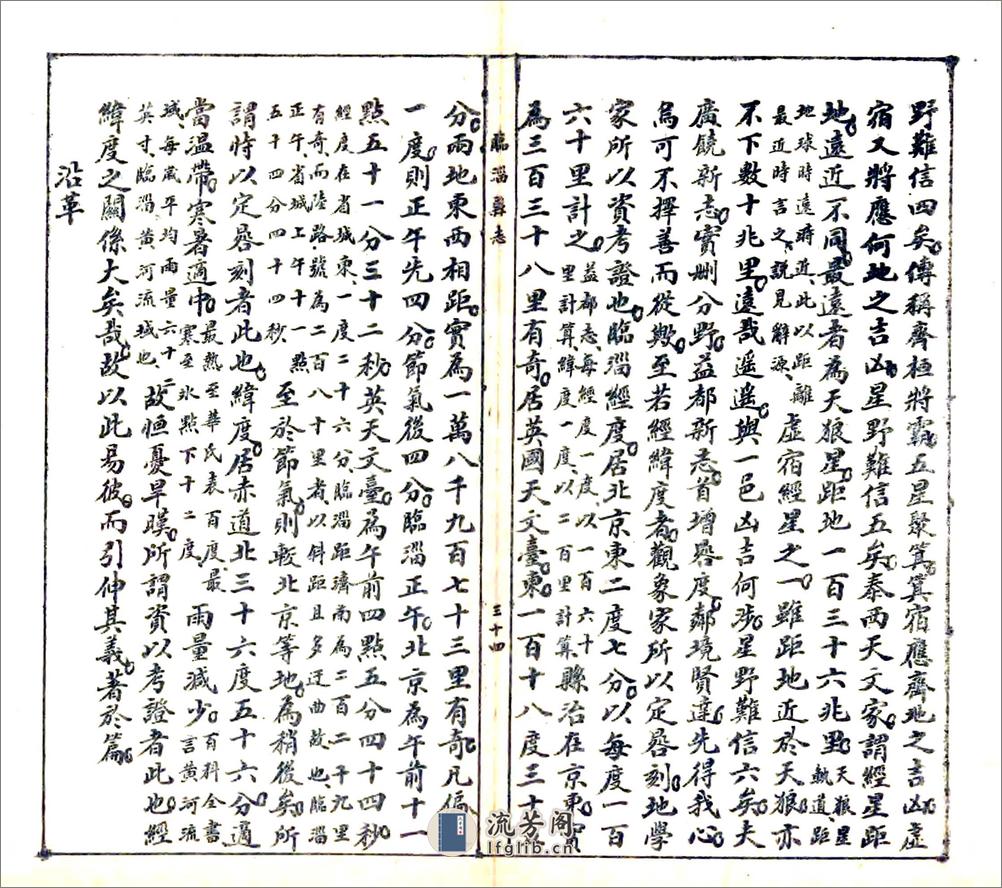 野難信四矣傳稱齊桓將霸五星聚箕箕宿應齊地之吉凶虛
宿又將應何地之吉凶星野難信五矣泰西天文家謂經星距
地遠近不同最遠者為天狼星距地一百三十六兆里天狼星軌道距
地球時遠時近此以距離最近時言之說見解源虛宿經星之一雖距地近於天狼亦
不下數十兆里遠哉遥遥與一邑凶吉何涉星野難信六矣夫
廣饒新志實刪分野益都新志首增晷度鄰境賢達先得我心
烏可不擇善而從歟至若經緯度者觀象家所以定晷刻地學
家所以資考證也臨淄經度居北京東二度七分以每度一百
六十里計之益都志每經度一度以一百六十里計算緯度一度以二百里計算縣治在京東實
為三百三十八里有奇居英國天文臺東一百十八度三十
臨淄縣志
三十四
分兩地東西相距實為一萬八千九百七十三里有奇凡偏
一度則正午先四分節氣後四分臨淄正午北京為午前十一
點五十一分三十二秒英天文臺為午前四點五分四十四秒
經度在省城東一度二十六分臨淄距濟南為二百二十九里有奇而陸路號為二百八十里者以斜距且多迂曲故也臨淄
正午省城上午十一點五十四分四十四秒至於節氣則較北京等地為稍後矣所
謂時以定晷刻者此也緯度居赤道北三十六度五十六分適
當温帶寒暑適中最熱至華氏表百度最寒至氷點下十二度雨量減少百科全書言黃河流
域每歲平均雨量六十英寸臨淄黃河流域也故恒憂旱暵所謂資以考證者此也經
緯度之關係大矣哉故以此易彼而引伸其義著於篇
沿革
流芳阁
lfglib.cn